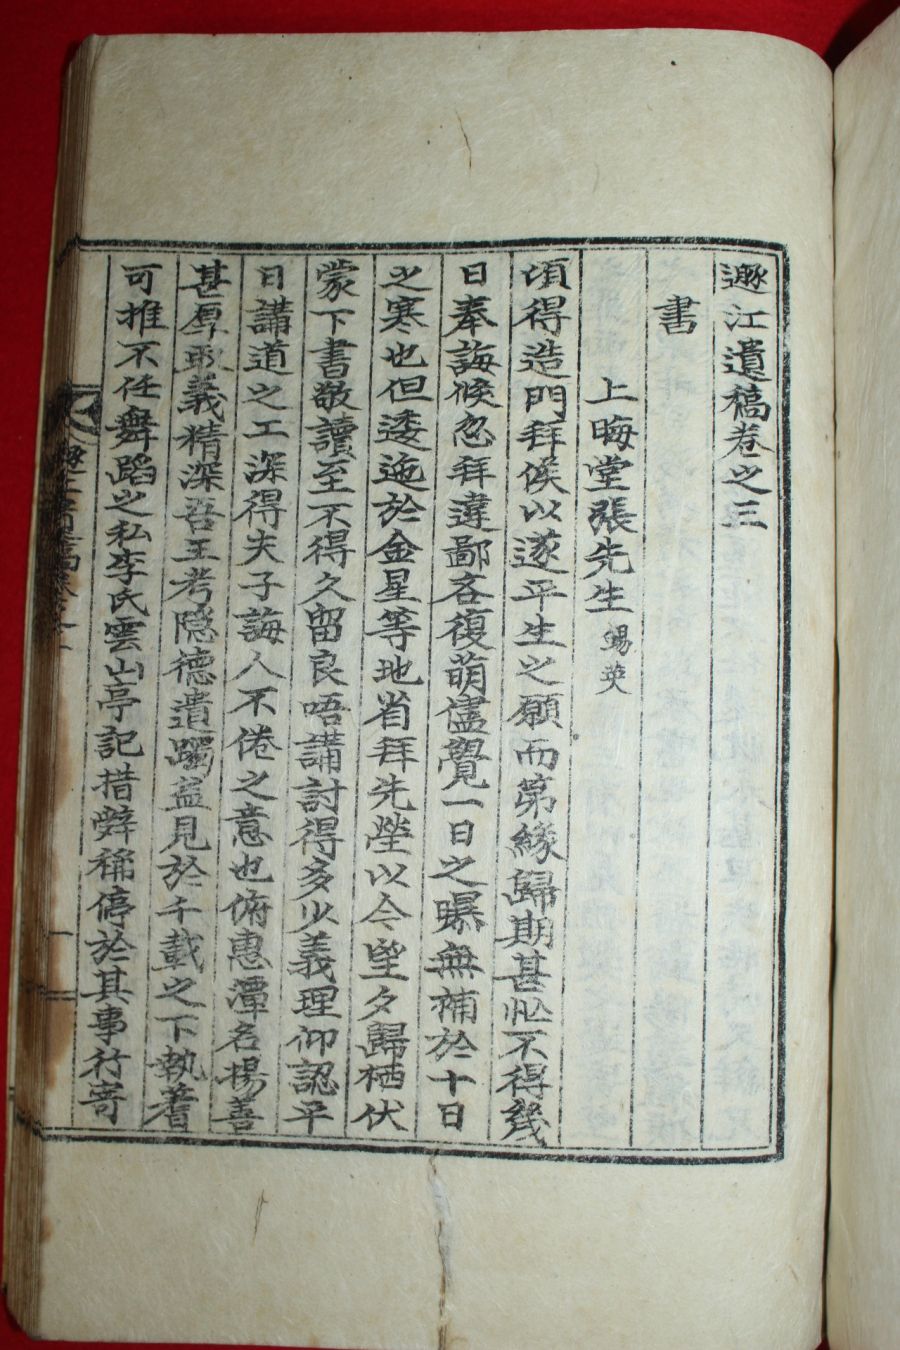 遯江遺稿卷之三
書
上晦堂張先生 錫英
頃得造門拜候以遂平生之願而第緣歸期甚忙不得幾
日奉誨候忽拜違鄙吝復萌儘覺一日之曝無補於十日
之寒也但逶迤於金星等地省拜先塋以今望夕歸栖伏
蒙下書敬讀至不得久留良唔講討得多少義理仰認平
日講道之工深得夫子誨人不倦之意也俯惠潭名揚善
甚厚取義精深吾王考隐德遺躅益見於千載之下執耆
可推不任舞蹈之私李氏雲山亭記措辤稱停於其事行寄